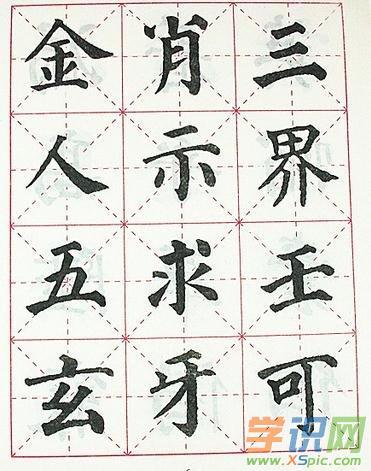 金肖三
人示界
五求壬
玄牙可
学识网
www.XSpic.com